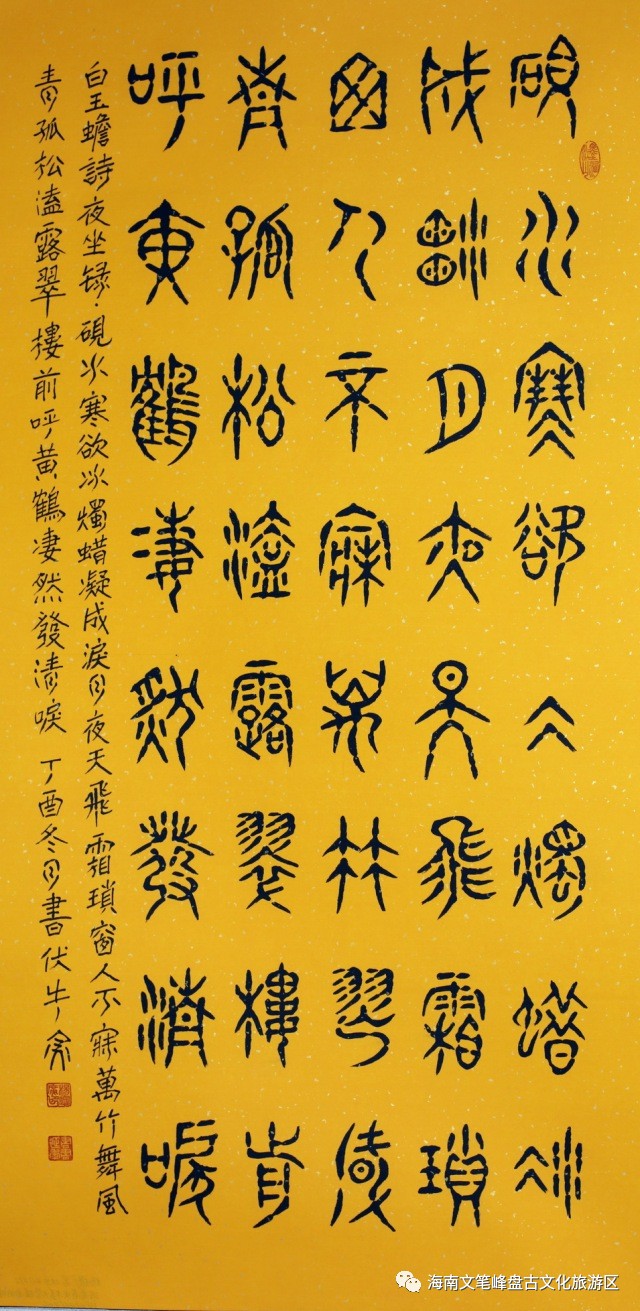 硯水寒欲冰燭蜡凝
成淚月夜天飛霜瑣
窗人不寐萬竹舞風
青孤松溘露翠樓前
呼黄鶴凄然發清唳
白玉蟾詩夜坐録·硯水寒欲冰燭蜡凝成淚月夜天飛霜瑣窗人不寐萬竹舞風
青孤松溘露翠樓前呼黄鶴凄然發清唳 丁酉冬月書伏牛
海南文笔峰盘古文化旅游区